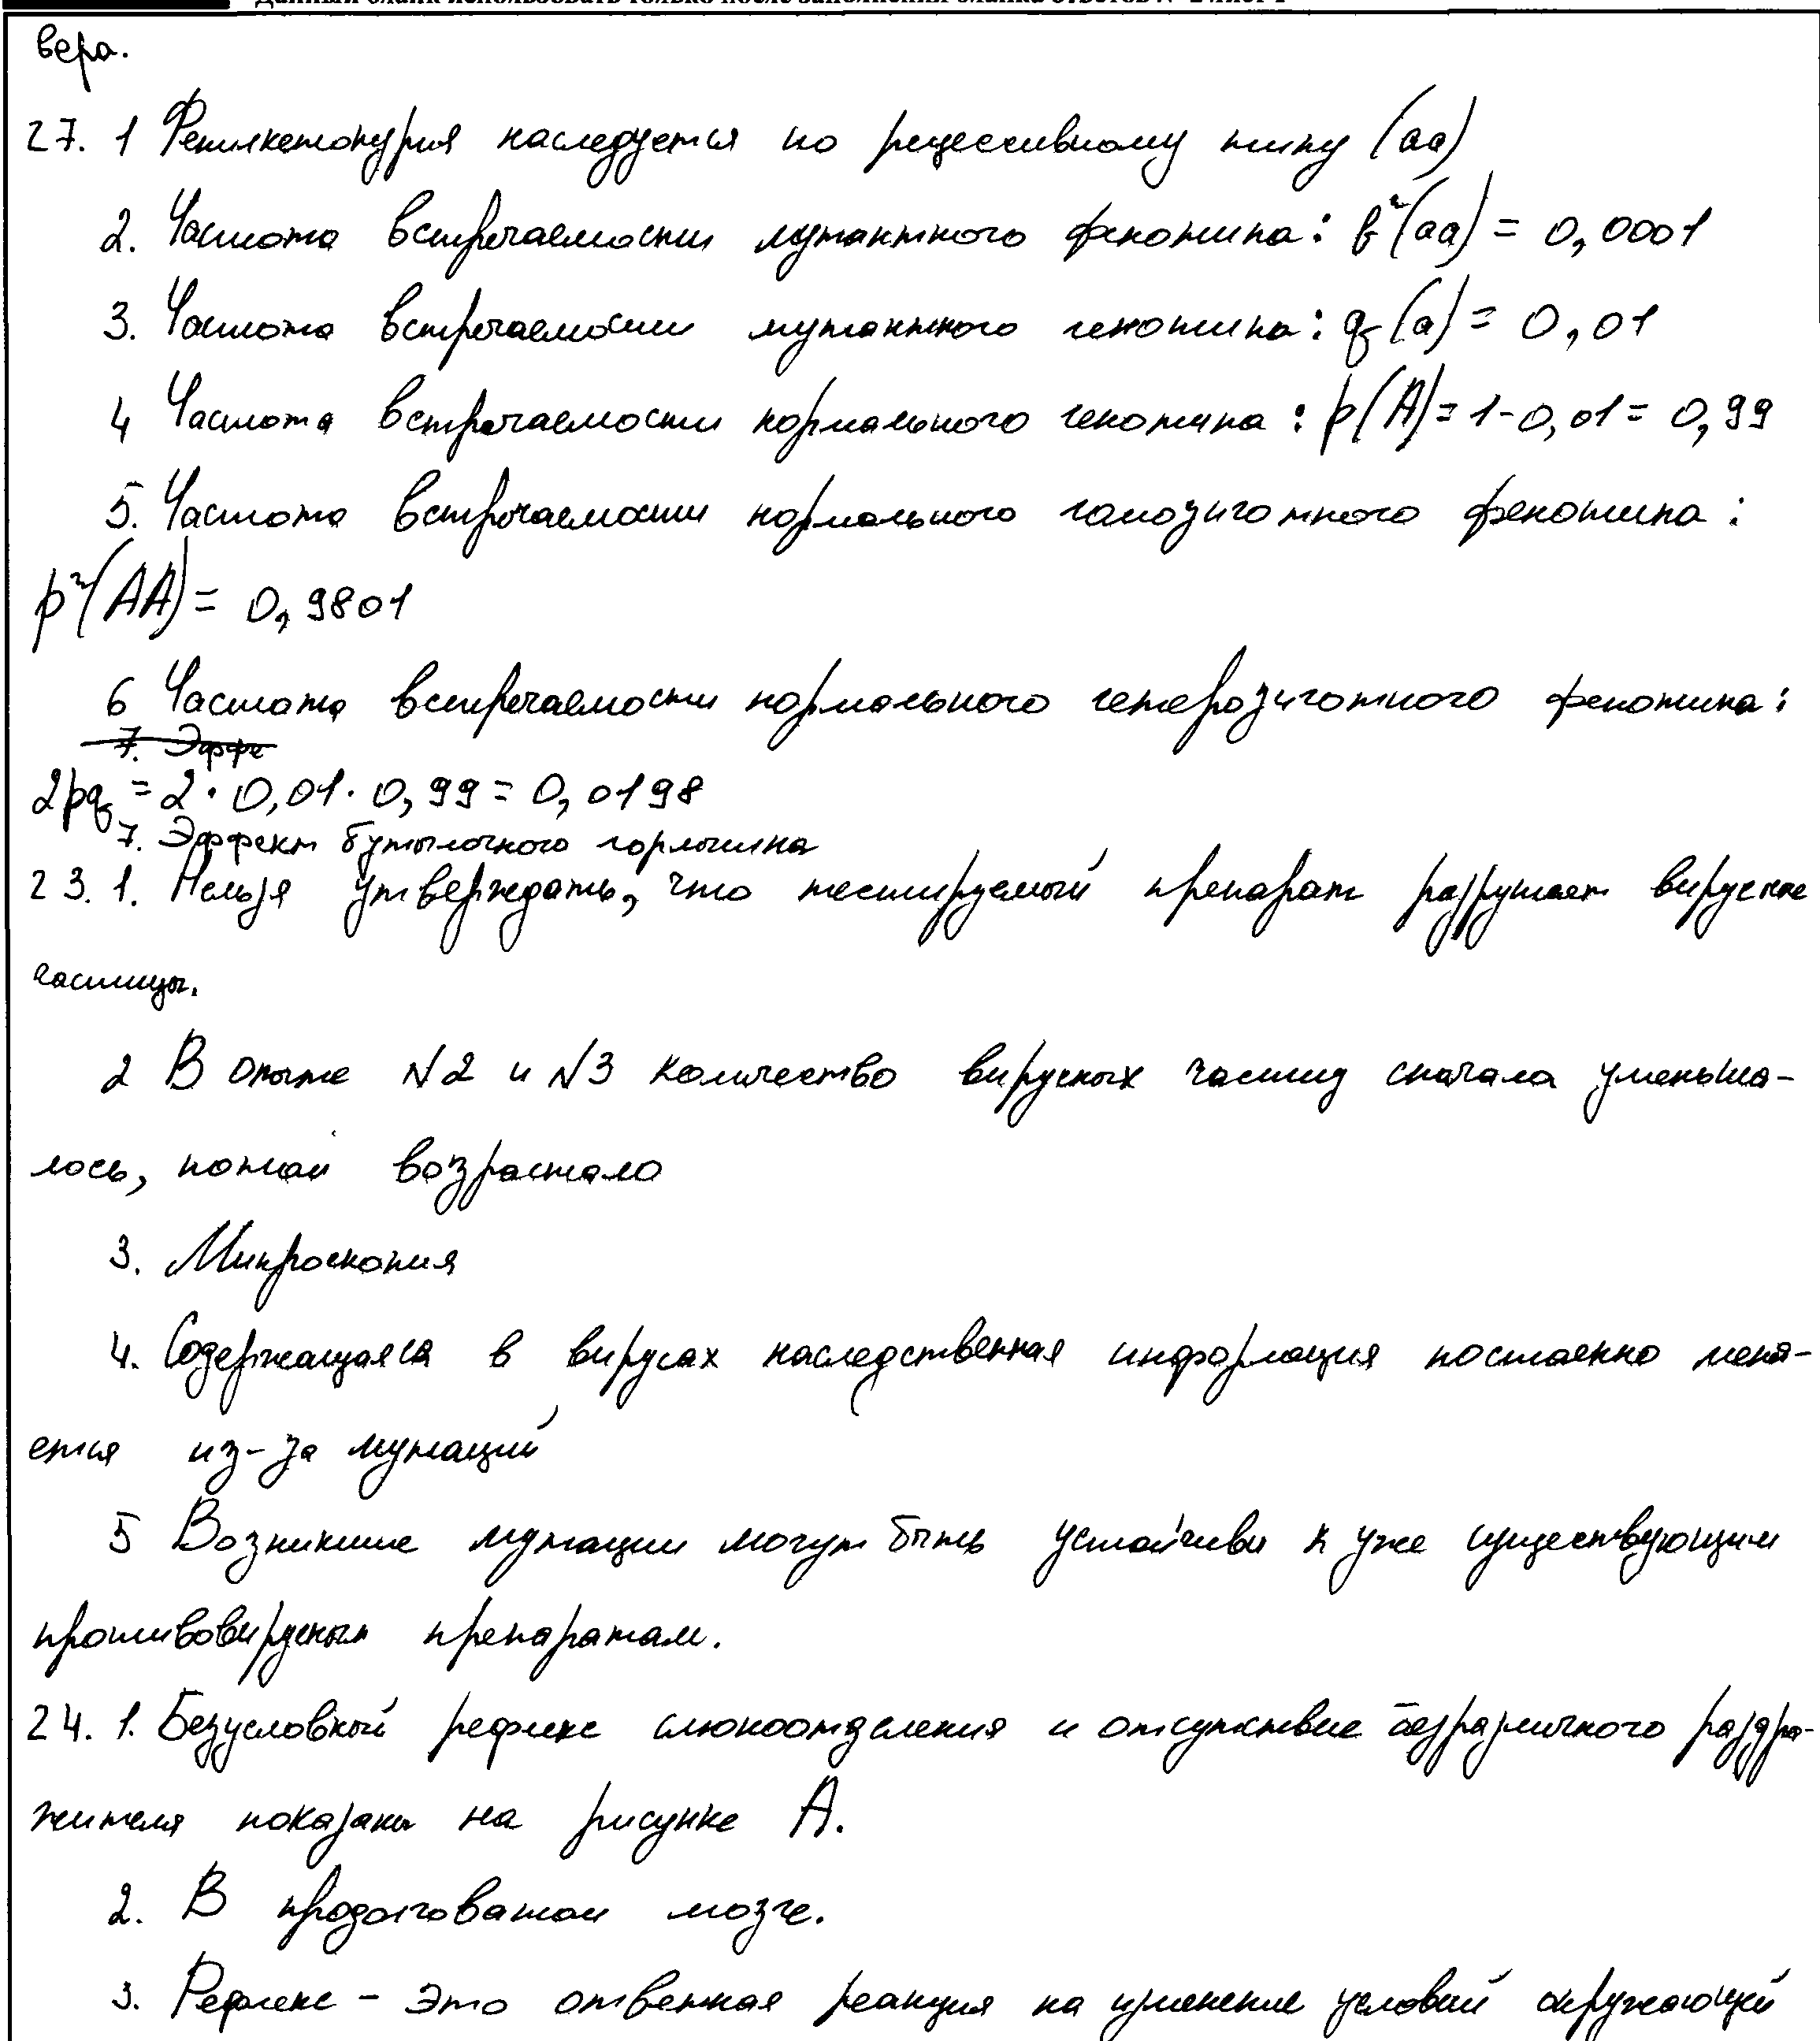 Данный бланк использовать только после заполнения бланка ответов № 2 лист 1
вера.
27. 1 Фенилкетонурия наследуется по рецессивному типу (aa)
2. Частота встречаемости мутантного фенотипа: q²(aa) = 0,0001
3. Частота встречаемости мутантного генотипа: q(a) = 0,01
4 Частота встречаемости нормального генотипа: p(A) = 1-0,01 = 0,99
5. Частота встречаемости нормального гомозиготного фенотипа:
p²(AA) = 0,9801
6 Частота встречаемости нормального гетерозиготного фенотипа:
7. Эффе
2pq = 2 · 0,01 · 0,99 = 0,0198
7. Эффект бутылочного горлышка
23. 1. Нельзя утверждать, что тестируемый препарат разрушает вирусные
частицы.
2 В опыте №2 и №3 количество вирусных частиц сначала уменьша-
лось, потом возрастало
3. Микроскопия
4. Содержащаяся в вирусах наследственная информация постоянно меня-
ется из-за мутаций
5 Возникшие мутации могут быть устойчивы к уже существующим
противовирусным препаратам.
24. 1. Безусловный рефлекс слюноотделения и отсутствие безразличного раздра-
жителя показаны на рисунке А.
2. В продолговатом мозге.
3. Рефлекс - это ответная реакция на изменение условий окружающей